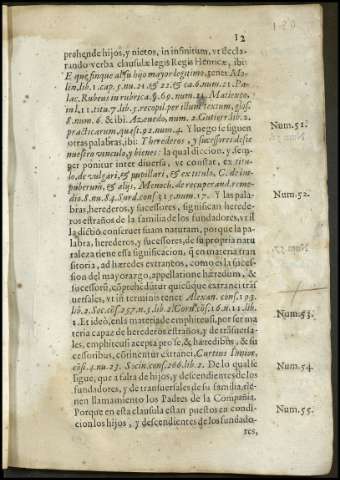 12
prehende hijos, y nietos, in infinitum, vt decla-
rando verba clausulæ legis Regis Henricæ, ibi:
E que finque al su hijo mayor legitimo, tenet Mo-
lin. lib. 1. cap. 5. nu. 21. & 22. & ca. 6. num. 21. Pa-
lac. Rubeus in rubrica, §. 69. num. 21. Matienço,
in l. 11. titu. 7. lib. 5. recopil. per illum textum, glos.
8. num. 6. & ibi. Azeuedo, num. 2. Gutierr. lib. 2.
practicarum, quæst. 92. num. 4. Y luego se siguen
otras palabras, ibi: Y herederos, y sucessores deste
nuestro vinculo, y bienes: la qual diccion, y, sem-
per ponitur inter diuersa, vt constat, ex titu-
lo, de vulgari, & pupillari, & ex titulo, C. de im-
puberum, & alijs, Menoch. de recuperand. reme-
dio. 8. nu. 84. Surd. cons. 325. num. 17. Y las pala-
bras, herederos, y sucessores, significan herede-
ros estraños de la familia de los fundadores, vt il
la dictiò conseruet suam naturam, porque la pa-
labra, herederos, y sucessores, de su propria natu
raleza tiene esta significacion, q̃ en materia tran
sitoria, ad hæredes extraneos, como es la suces-
sion del mayorargo, appellatione hæredum, &
sucessorũ, cõprehẽditur quicũque extranei trãs
uersales, vt in terminis tenet Alexan. cons. 193.
lib. 2. Soc. cõs. 257. n. 3. lib. 2. Corn. cõs. 16. n. 11. lib.
1. Et ideò, en la materia de emphiteusi, por ser ma
teria capaz de herederos estraños, y de trãsuersa-
les, emphiteusi accepta pro se, & hæredibus, & su
cessoribus, cõtinentur extranei, Curtius Iunior,
cõs. 4. nu. 23. Socin. cons. 266. lib. 2. De lo qual se
sigue, que a falta de hijos, y descendientes de los
fundadores, y de transuersales de su familia, tie-
nen llamamiento los Padres de la Compañia.
Porque en esta clausula estan puestos en condi-
cion los hijos, y descendientes de los fundado-
res,
Num. 51.
Num. 52.
Num. 53.
Num. 54.
Num. 55.